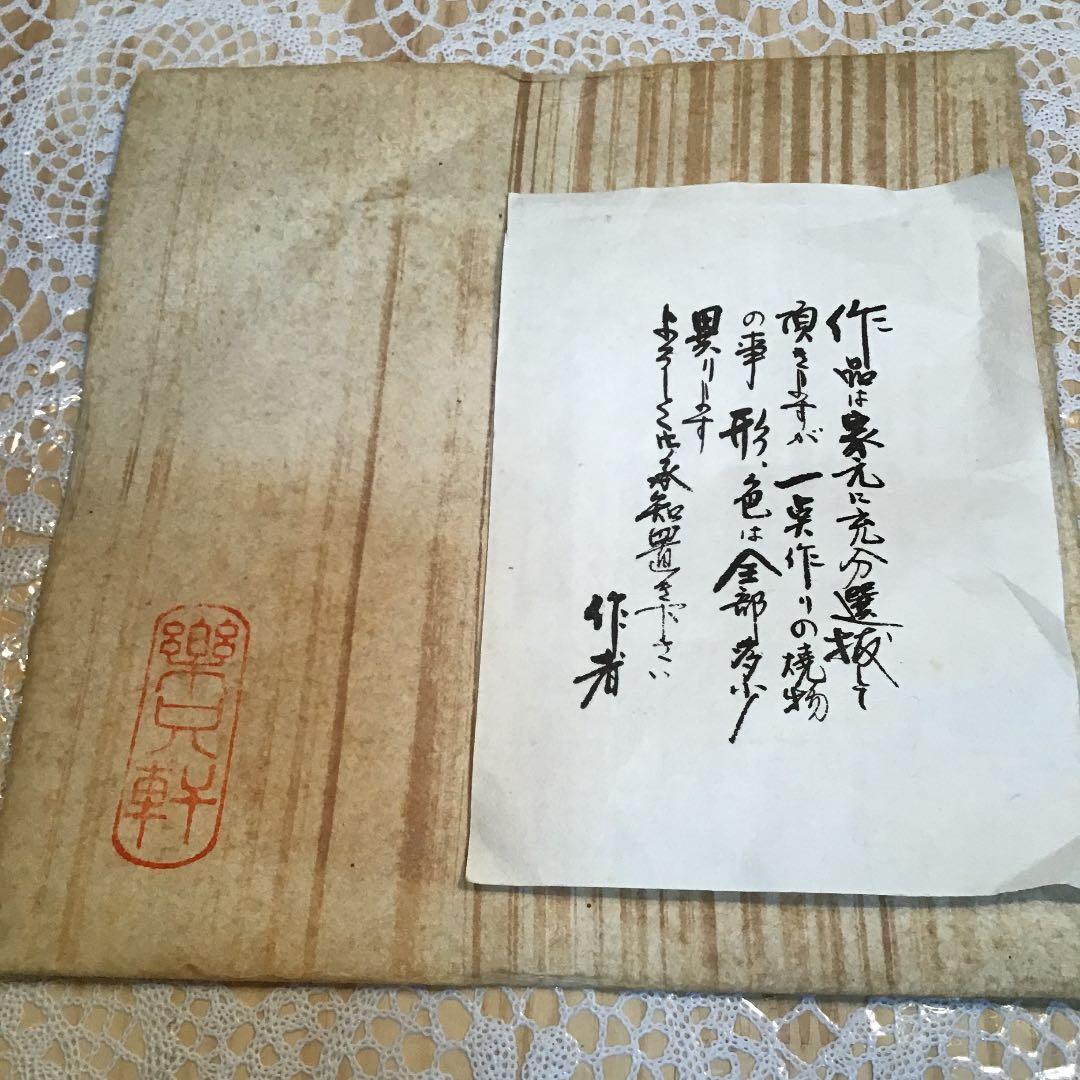 作品は家元に充分選抜して
頂きますが 一点作りの焼物
の事 形、色は全部多少
異ります
よろしく御承知置き下さい
作者
樂只軒